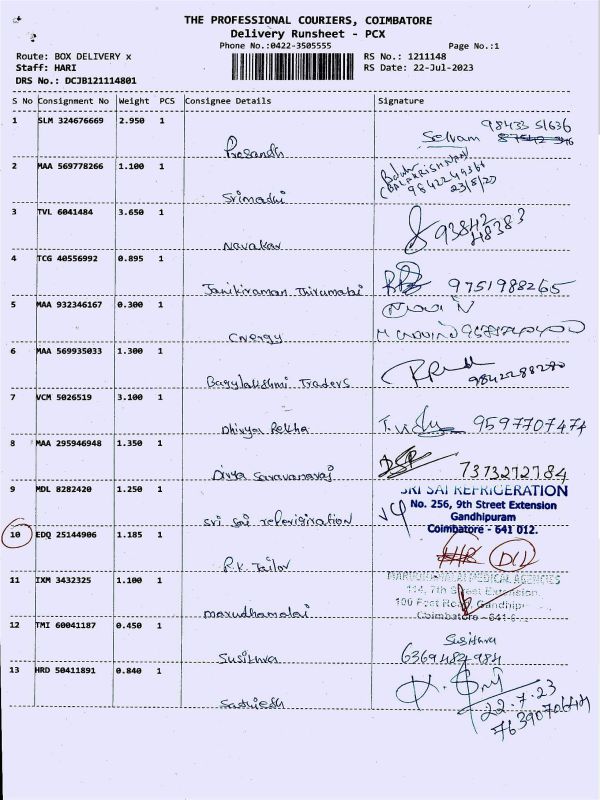 THE PROFESSIONAL COURIERS, COIMBATORE
Delivery Runsheet - PCX
Phone No.:0422-3505555
Page No.:1
Route: BOX DELIVERY x
RS No.: 1211148
Staff: HARI
RS Date: 22-Jul-2023
DRS No.: DCJB121114801
S No Consignment No Weight PCS Consignee Details Signature
1 SLM 324676669 2.950 1
98433 51636
Selvam
Prasandh
2 MAA 569778266 1.100 1
Srimadhi
3 TVL 6041484 3.650 1
93842 48383
Navakar
4 TCG 40556992 0.895 1
Janikiraman Thirumalai 9751988265
5 MAA 932346167 0.300 1
Cnergy
6 MAA 569935033 1.300 1
Bagylakshmi Traders 9842288280
7 VCM 5026519 3.100 1
Dhivya Rekha T. Vidhy 9597707474
8 MAA 295946948 1.350 1
Divya Saravanavaj 7373212784
9 MDL 8282420 1.250 1
SRI SAI REFRIGERATION
No. 256, 9th Street Extension
Gandhipuram
Coimbatore - 641 012.
sri sai referigination
10 EDQ 25144906 1.185 1
R.K. Tailor
11 IXM 3432325 1.100 1
MARUDHAMALAI MEDICAL AGENCIES
114, 7th Street Extension,
100 Feet Road, Gandhip
Coimbatore - 641
marudhamalai
12 TMI 60041187 0.450 1
Susithra
6369484984
Susithra
13 HRD 50411891 0.840 1
22.7.23
Sathiesh